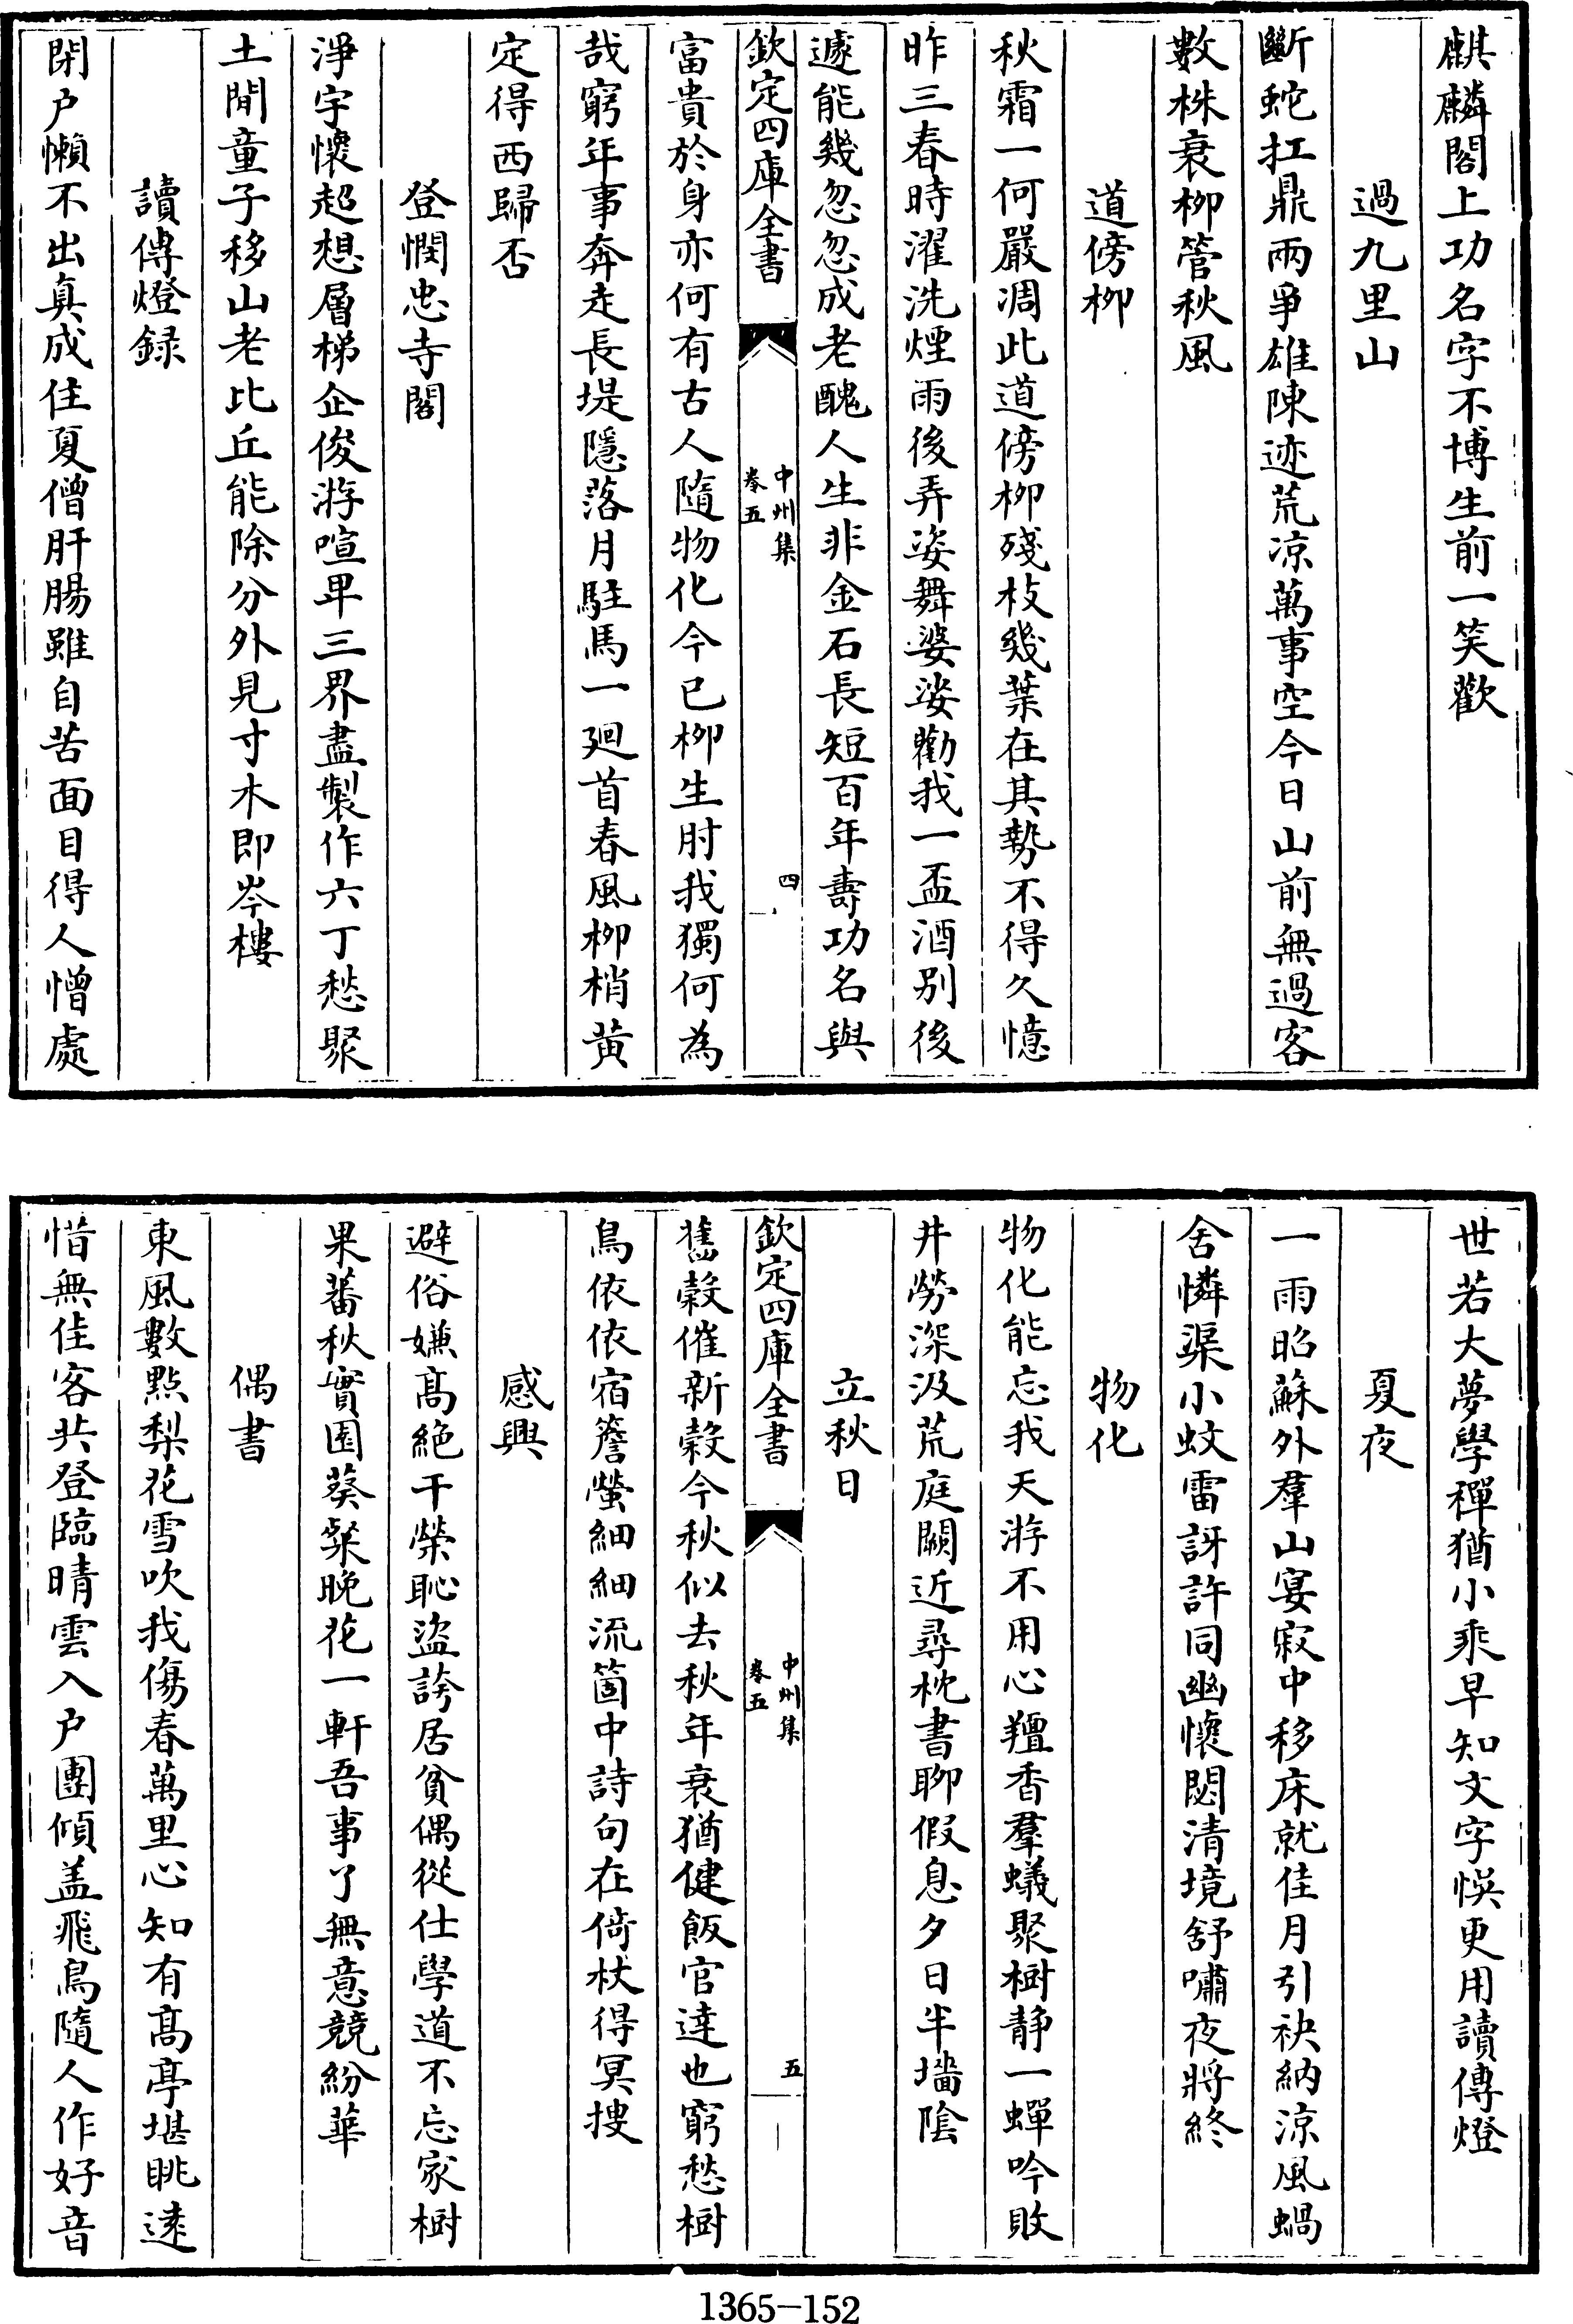 麒麟閣上功名字不博生前一笑歡
過九里山
斷蛇扛鼎兩爭雄陳迹荒凉萬事空今日山前無過客
數株衰栁管秋風
道傍栁
秋霜一何嚴凋此道傍栁殘枝幾葉在其勢不得久憶
昨三春時濯洗煙雨後弄姿舞婆娑勸我一盃酒别後
遽能幾忽忽成老醜人生非金石長短百年壽功名與
欽定四庫全書
中州集
卷五
四
富貴於身亦何有古人隨物化今已栁生肘我獨何為
哉窮年事奔走長堤隱落月駐馬一廻首春風栁梢黄
定得西歸否
登憫忠寺閣
淨宇懷超想層梯企俊游喧卑三界盡製作六丁愁聚
土閒童子移山老比丘能除分外見寸木即岑樓
讀傳燈録
閉户懶不出真成住夏僧肝腸雖自苦面目得人憎處
世若大夢學禪猶小乘早知文字悮更用讀傳燈
夏夜
一雨昭蘇外羣山宴寂中移床就佳月引袂納涼風蝸
舍憐渠小蚊雷訝許同幽懷閟清境舒嘯夜將終
物化
物化能忘我天游不用心羶香羣蟻聚樹静一蟬吟敗
井勞深汲荒庭闕近尋枕書聊假息夕日半墻陰
立秋日
欽定四庫全書
中州集
卷五
五
舊榖催新榖今秋似去秋年衰猶健飯官達也窮愁樹
鳥依依宿簷螢細細流箇中詩句在倚杖得冥搜
感興
避俗嫌髙絶干榮恥盜誇居貧偶從仕學道不忘家樹
果蕃秋實園葵粲晚花一軒吾事了無意競紛華
偶書
東風數㸃梨花雪吹我傷春萬里心知有髙亭堪眺逺
惜無佳客共登臨晴雲入户團傾盖飛鳥隨人作好音
1365-152